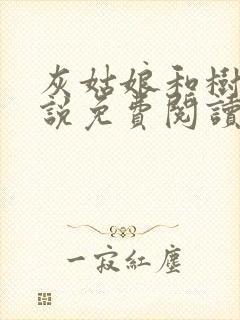 灰姑娘和樹
說免費閱讀
一寂紅塵